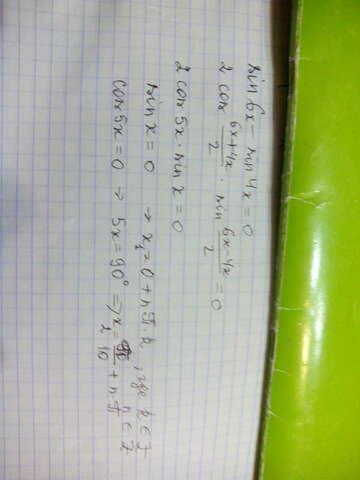 sin 6x - sin 4x = 0
2 cos (6x+4x)/2 · sin (6x-4x)/2 = 0
2 cos 5x · sin x = 0
sin x = 0 → x₁ = 0 + π · k, где k ∈ Z
cos 5x = 0 → 5x = 90° ⇒ x₂ = π/10 + n · π/5 n ∈ Z